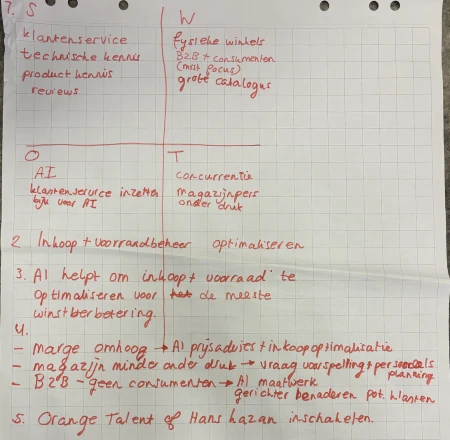 1. S
klantenservice
technische kennis
product kennis
reviews
W
fysieke winkels
B2B + consumenten
(mist focus)
grote catalogus
O
AI
klantenservice inzetten
bijv voor AI
T
concurrentie
magazijnpers
onder druk
2 Inkoop + voorraadbeheer optimaliseren
3. AI helpt om inkoop + voorraad te
optimaliseren voor het de meeste
winstverbetering.
4.
- marge omhoog → AI prijsadvies + inkoopoptimalisatie
- magazijn minder onder druk → vraag voorspelling + personeels
planning
- B2B - geen consumenten → AI maatwerk
gerichter benaderen pot. klanten
5. Orange Talent of Hans hazan inschakelen.